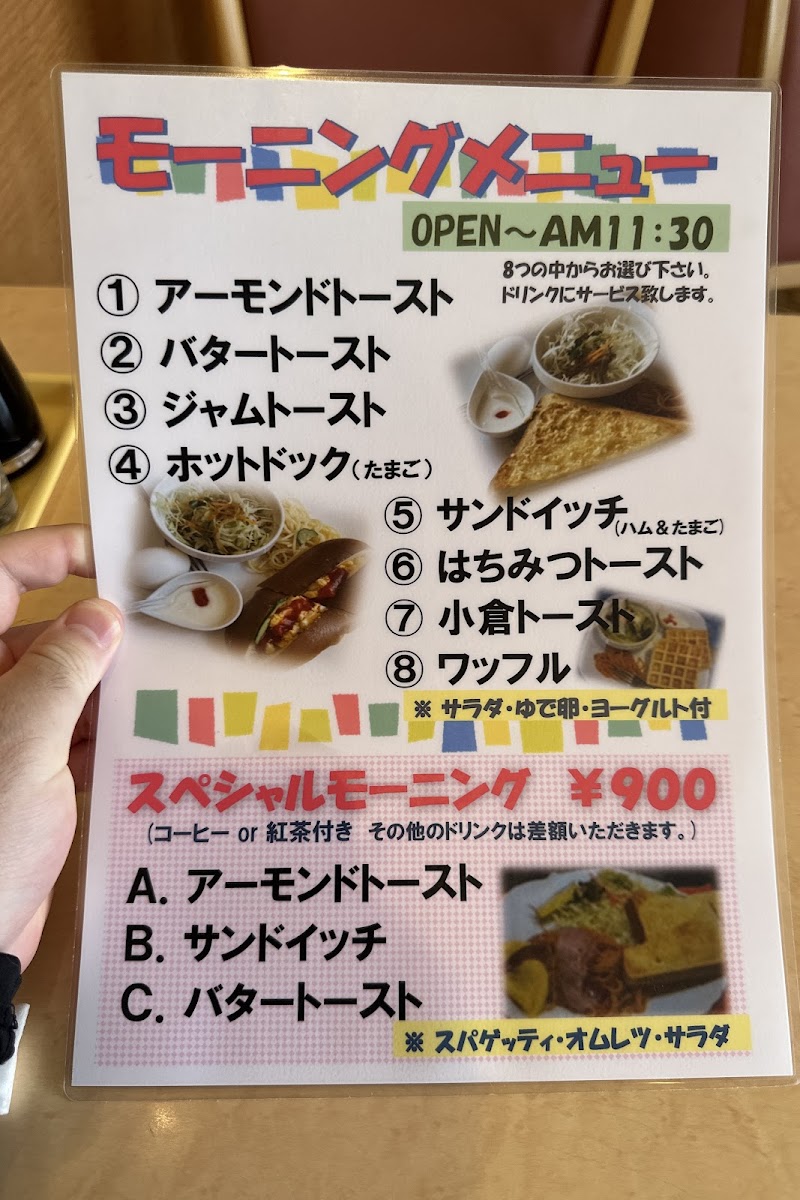 モーニングメニュー
OPEN～AM11:30
8つの中からお選び下さい。
ドリンクにサービス致します。
① アーモンドトースト
② バタートースト
③ ジャムトースト
④ ホットドック(たまご)
⑤ サンドイッチ(ハム&たまご)
⑥ はちみつトースト
⑦ 小倉トースト
⑧ ワッフル
※ サラダ・ゆで卵・ヨーグルト付
スペシャルモーニング ￥900
(コーヒー or 紅茶付き その他のドリンクは差額いただきます。)
A. アーモンドトースト
B. サンドイッチ
C. バタートースト
※ スパゲッティ・オムレツ・サラダ